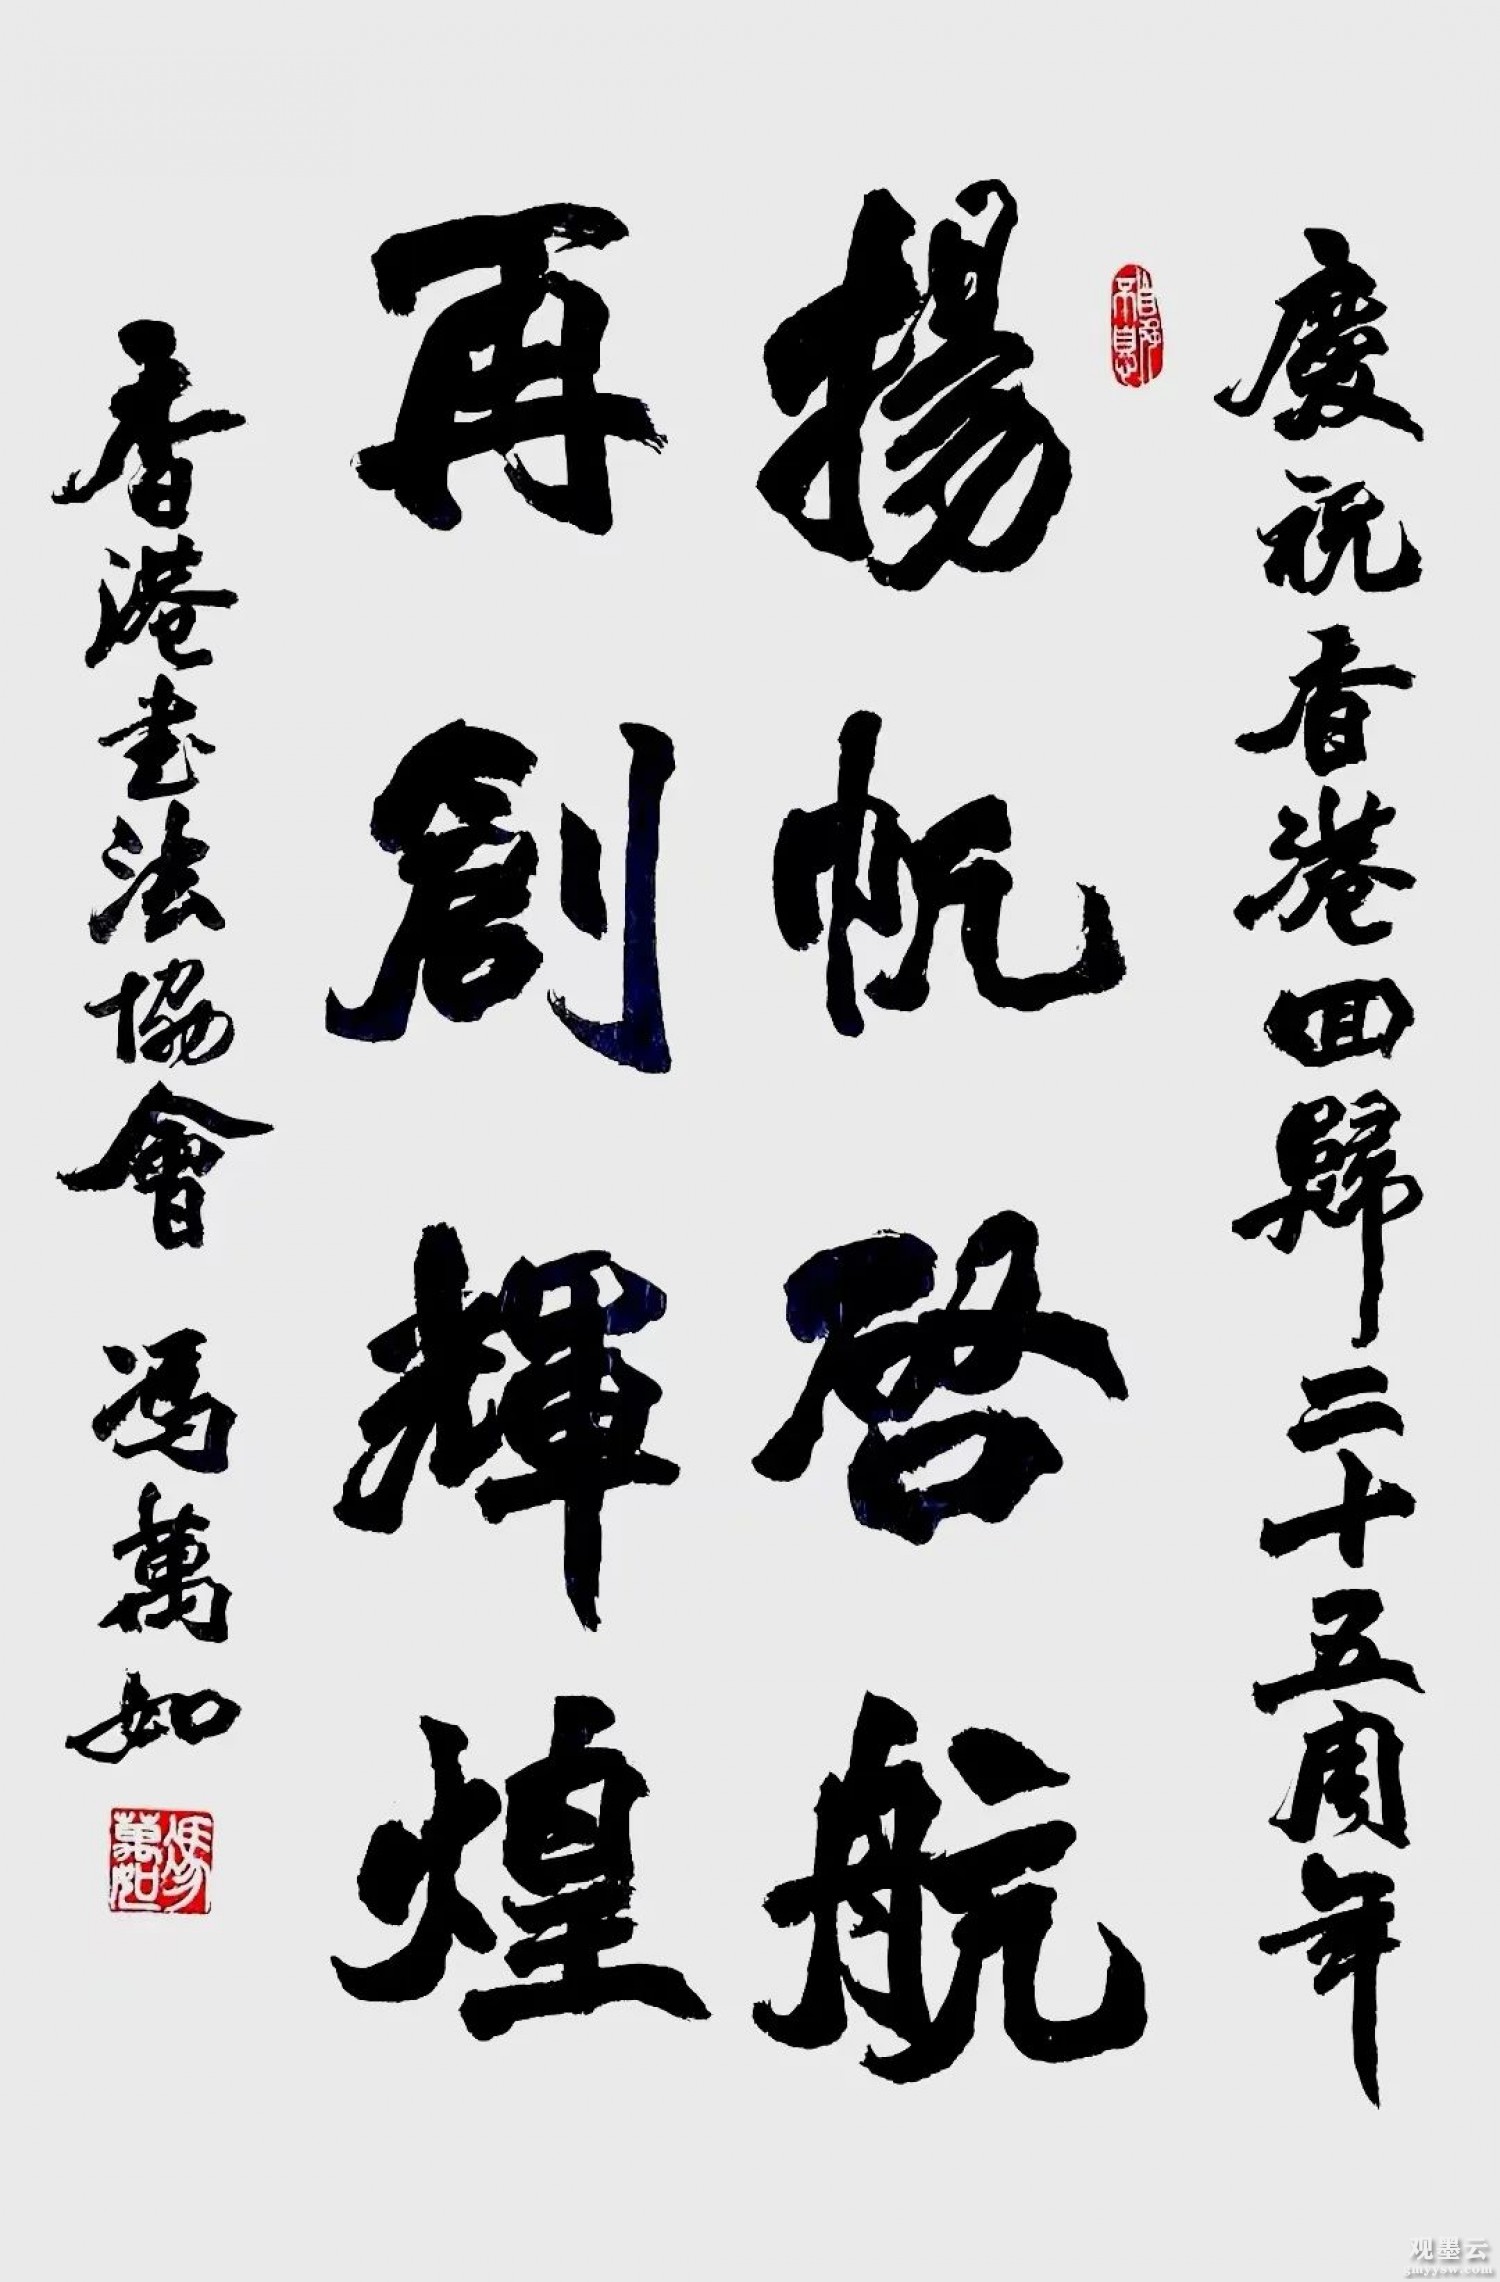 慶祝香港回歸二十五周年
自強不息
揚帆啓航
再創輝煌
香港書法協會 馮萬如
馮萬如
观墨云
gmyysw.com